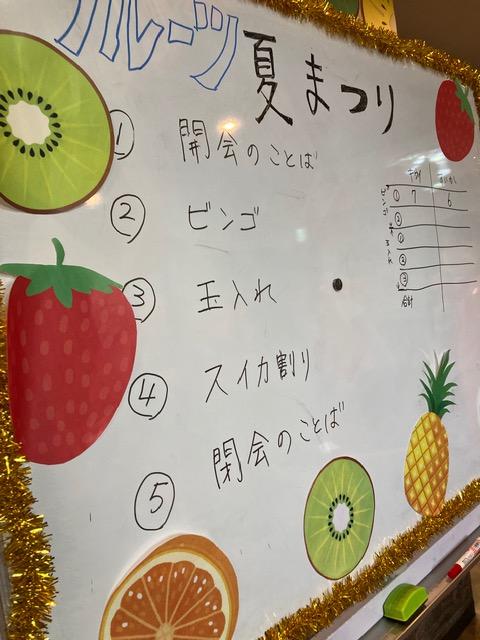 フルーツ
夏まつり
① 開会のことば
② ビンゴ
③ 玉入れ
④ スイカ割り
⑤ 閉会のことば
ビンゴ
① 7 6
②
玉入れ
①
②
③
合計